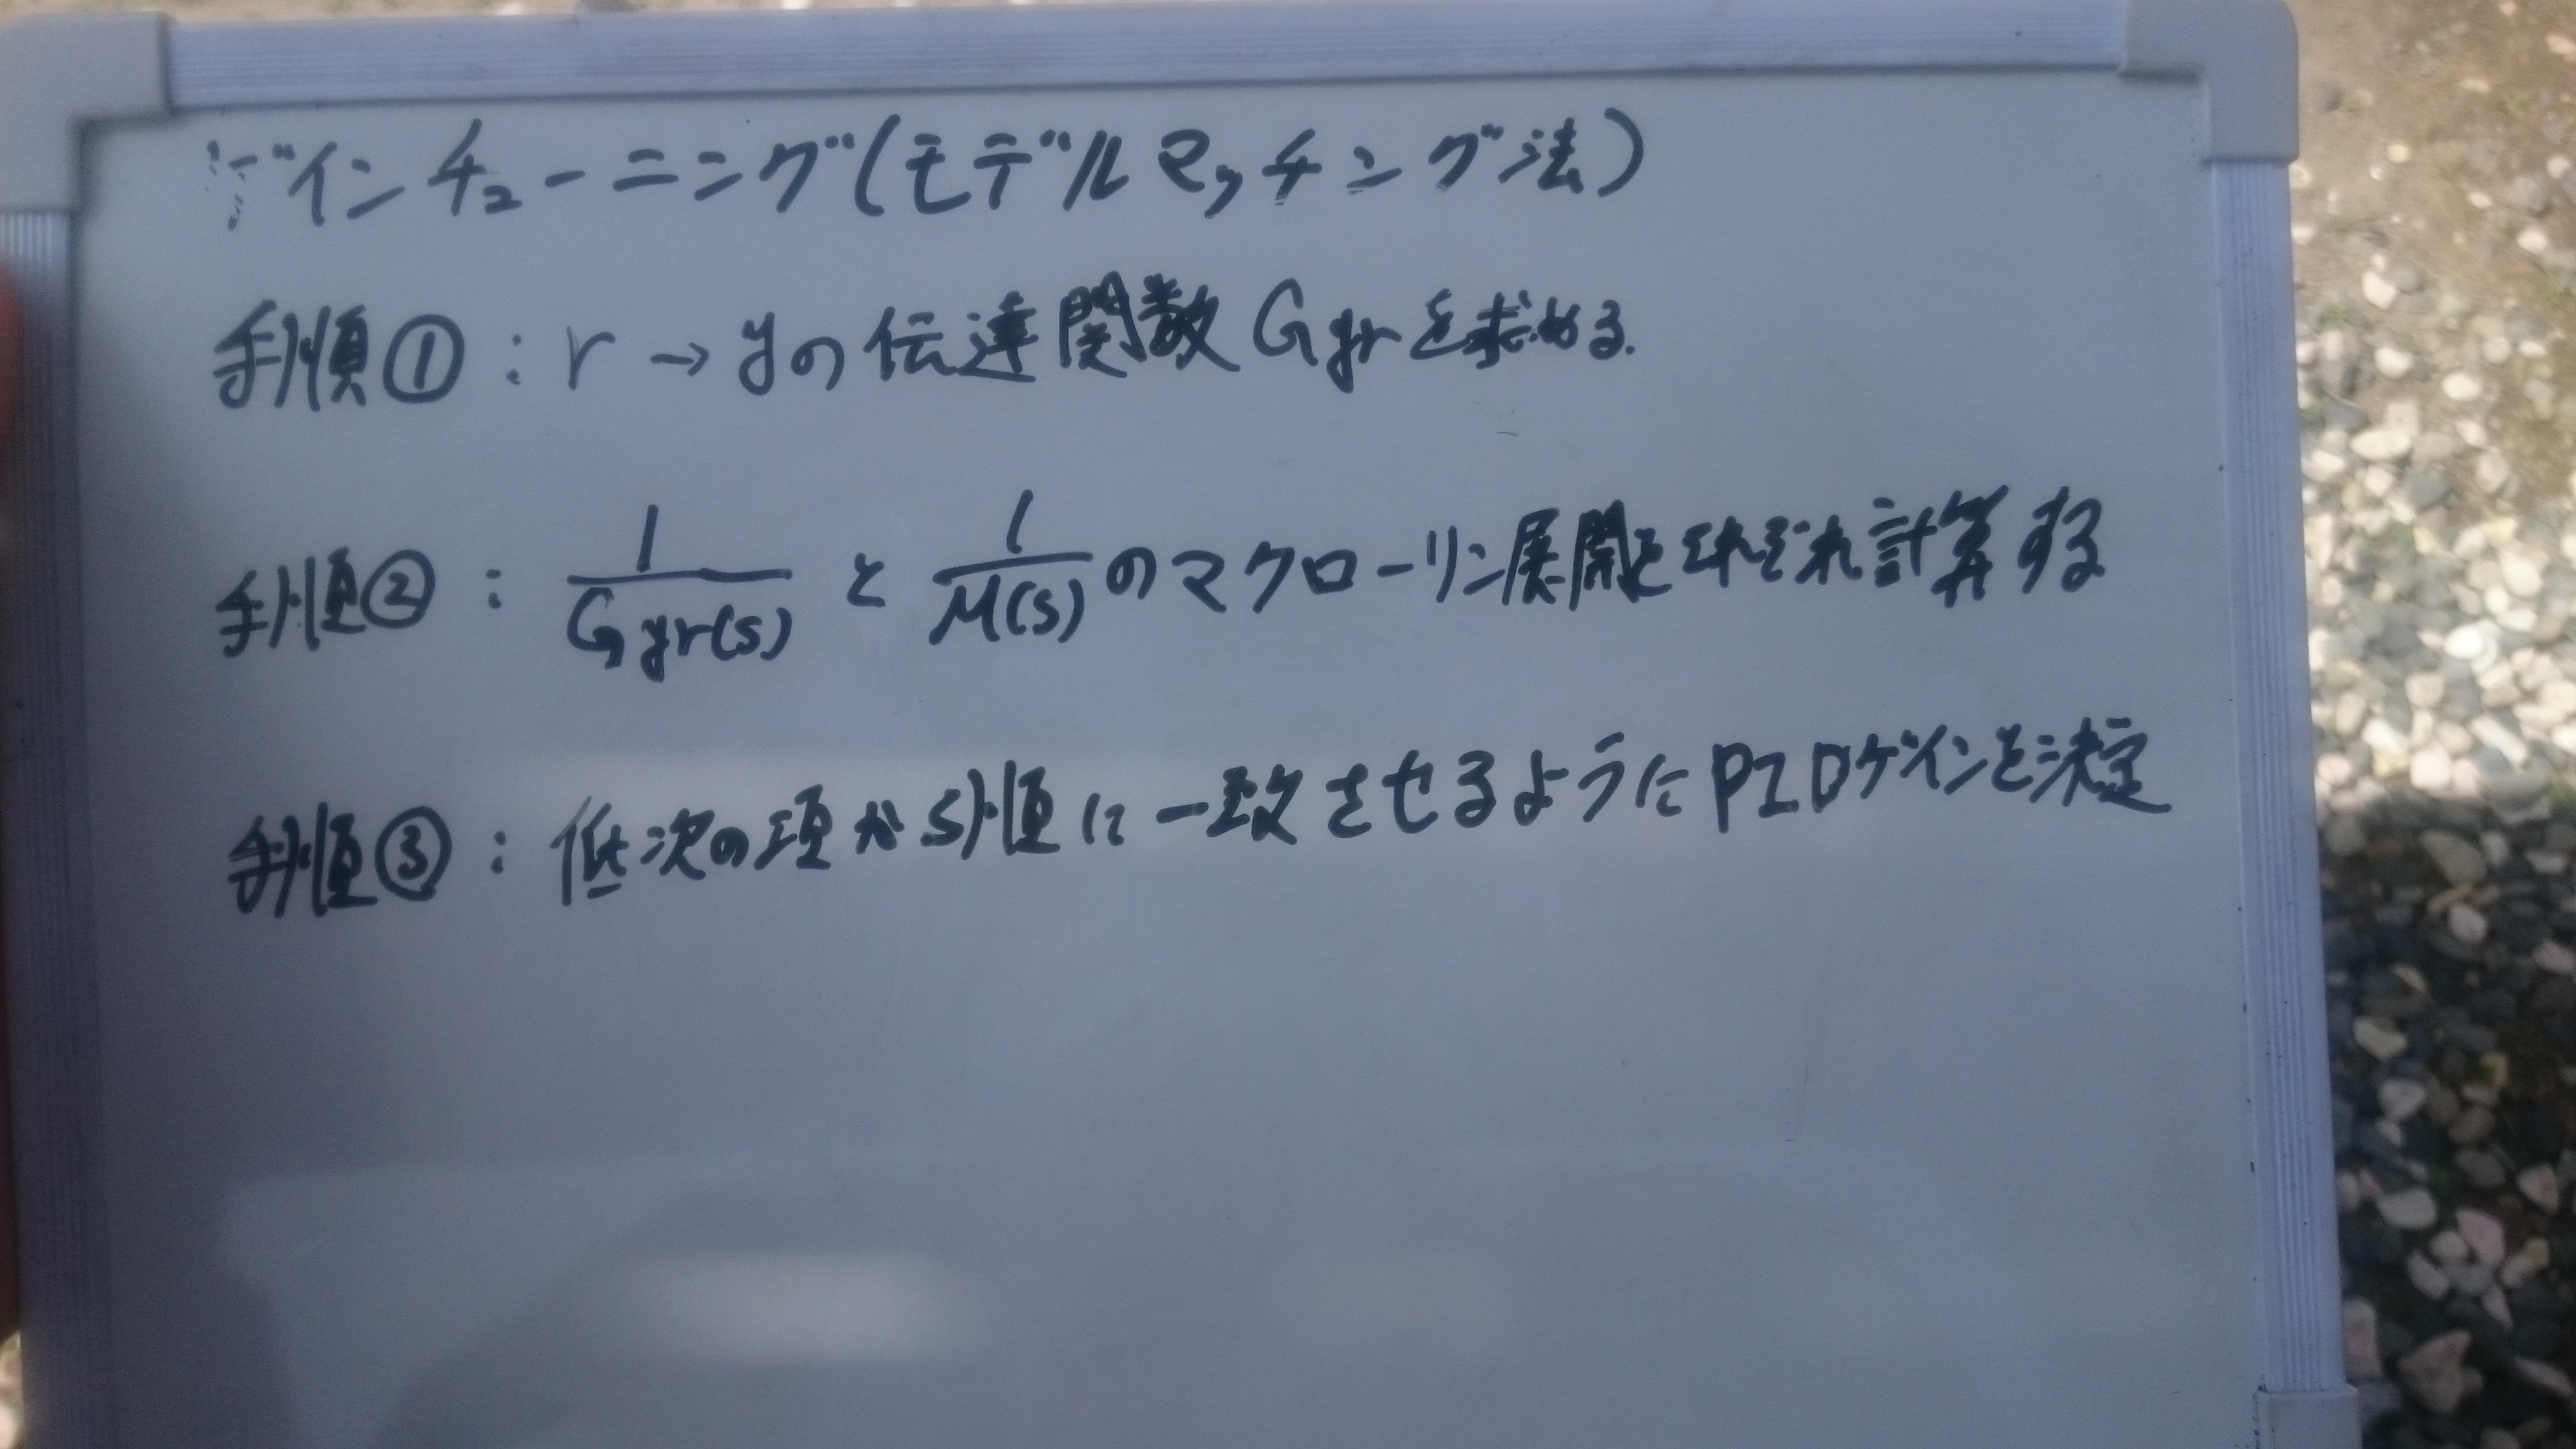 ゲインチューニング(モデルマッチング法)
手順①：r→yの伝達関数Gyrを求める.
手順②：1/Gyr(s)と1/M(s)のマクローリン展開をそれぞれ計算する
手順③：低次の項から順に一致させるようにPIDゲインを決定